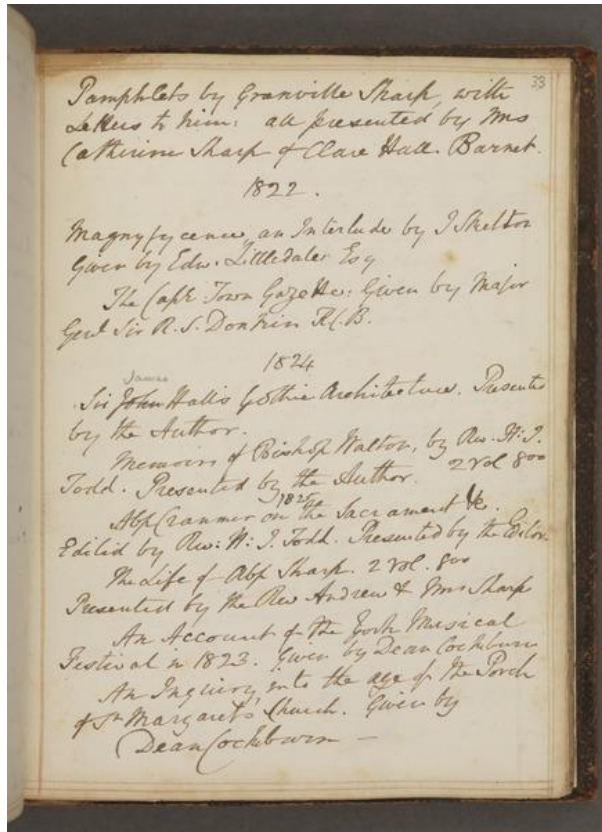 33
Pamphlets by Granville Sharp, with
Letters to him: all presented by Mrs
Catherine Sharp of Clare Hall. Barnet.
1822.
Magnyfycence, an Interlude by J Skelton
Given by Edw. Littledaler Esq
The Cape Town Gazette: Given by Major
Genl Sir R. S. Donkin K.C.B.
1824
James
Sir John Halls Gothic Architecture. Presented
by the Author.
Memoirs of Bishop Walton, by Rev. H. J.
Todd. Presented by the Author. 2 vol 8vo
1825
Abp Cranmer on the Sacrament &c.
Edited by Rev: H. J. Todd. Presented by the Editor.
The Life of Abp Sharp. 2 vol. 8vo
Presented by the Rev Andrew & Mrs Sharp
An Account of the York Musical
Festival in 1823. Given by Dean Cockburn
An Inquiry into the age of the Porch
of St Margaret's Church. Given by
Dean Cockburn —